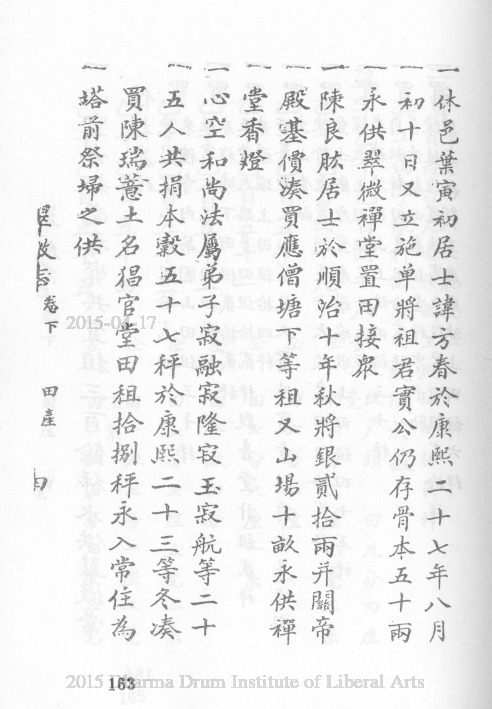 一休邑葉寅初居士諱芳春於康熙二十七年八月
初十日又立施单將祖君實公仍存骨本五十兩
永供翠微禪堂置田接衆
一陳良股居士於順治十年秋將銀貳拾兩并關帝
殿基價湊買應僧塘下等租又山場十畝永供禪
堂香燈
一心空和尚法屬弟子寂融寂隆寂玉寂航等二十
五人共捐本穀五十七秤於康熙二十三等冬凑
買陳瑞薏土名猖官堂田租拾捌秤永入常住為
塔前祭埽之供
卷下
田產
163
2015-04-17
2015 Dharma Drum Institute of Liberal Arts